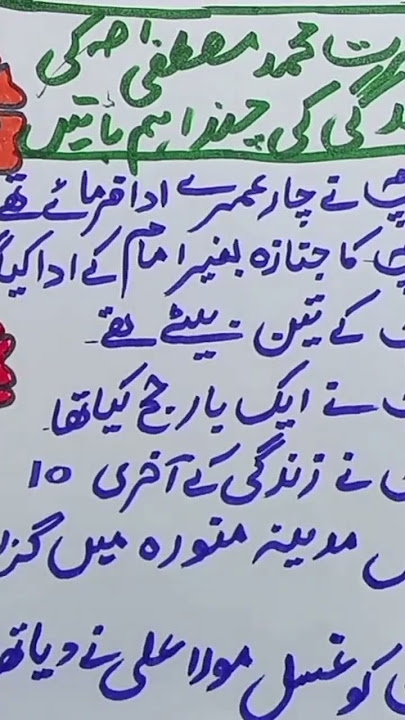 محمد مصطفیٰ ﷺ کی
زندگی کی چند اہم باتیں
نے چار عمرے ادا فرمائے تھے
کا جنازہ بغیر امام کے ادا کیا
کے تین بیٹے تھے۔
نے ایک بار حج کیا تھا۔
نے زندگی کے آخری 10
مدینہ منورہ میں
کو غسل مولا علی نے دیا تھا